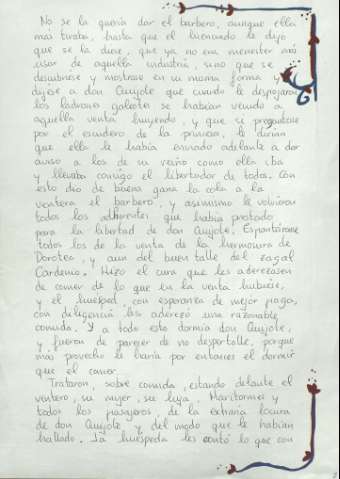 No se la quería dar el barbero, aunque ella
más tiraba, hasta que el licenciado le dijo
que se la diese, que ya no era menester más
usar de aquella industria, sino que se
descubriese y mostrase en su misma forma y
dijese a don Quijote que cuando le despojaron
los ladrones galeotes se habían venido a
aquella venta huyendo, y que si preguntase
por el escudero de la princesa, le dirían
que ella le había enviado adelante a dar
aviso a los de su reino como ella iba
y llevaba consigo el libertador de todos. Con
esto dio de buena gana la cola a la
ventera el barbero, y asimismo le volvieron
todos los adherentes que había prestado
para la libertad de don Quijote. Espantáronse
todos los de la venta de la hermosura de
Dorotea, y aun del buen talle del zagal
Cardenio. Hizo el cura que les aderezasen
de comer de lo que en la venta hubiese,
y el huésped, con esperanza de mejor paga,
con diligencia les aderezó una razonable
comida. Y a todo esto dormía don Quijote,
y fueron de parecer de no despertalle, porque
más provecho le haría por entonces el dormir
que el comer.
Trataron, sobre comida, estando delante el
ventero, su mujer, su hija, Maritornes y
todos los pasajeros, de la extraña locura
de don Quijote y del modo que le habían
hallado. La huéspeda les contó lo que con